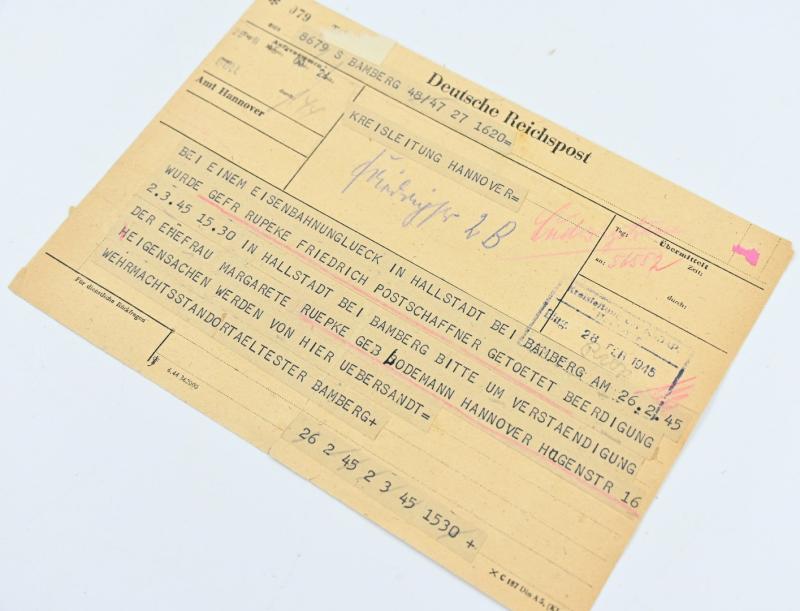 079
aus 8679 S BAMBERG 48/47 27 1620=
Deutsche Reichspost
Aufgenommen
Amt Hannover
KREISLEITUNG HANNOVER=
2B
56552
Übermittelt
Tag: Zeit:
an: durch:
Eing. 28. FEB. 1945
BEI EINEM EISENBAHNUNGLUECK IN HALLSTADT BEI BAMBERG AM 26.2.45
WURDE GEFR RUPEKE FRIEDRICH POSTSCHAFFNER GETOETET BEERDIGUNG
2.3.45 15.30 IN HALLSTADT BEI BAMBERG BITTE UM VERSTAENDIGUNG
DER EHEFRAU MARGARETE RUEPKE GEB BODEMANN HANNOVER HAGENSTR 16
HEIGENSACHEN WERDEN VON HIER UEBERSANDT=
WEHRMACHTSSTANDORTAELTESTER BAMBERG+
Für dienstliche Rückfragen
26 2 45 2 3 45 1530 +
× C 187 Din A 5,